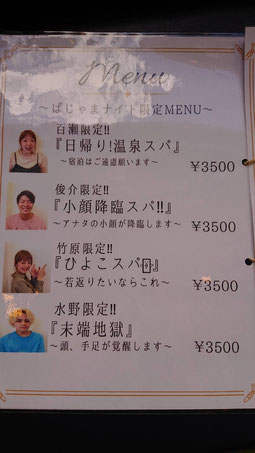 Menu
～ぱじゃまナイト限定MENU～
百瀬限定!!
『日帰り!温泉スパ』
～宿泊はご遠慮願います～
￥3500
俊介限定!!
『小顔降臨スパ!!』
～アナタの小顔が降臨します～
￥3500
竹原限定!!
『ひよこスパ』
～若返りたいならこれ～
￥3500
水野限定!!
『末端地獄』
～頭、手足が覚醒します～
￥3500